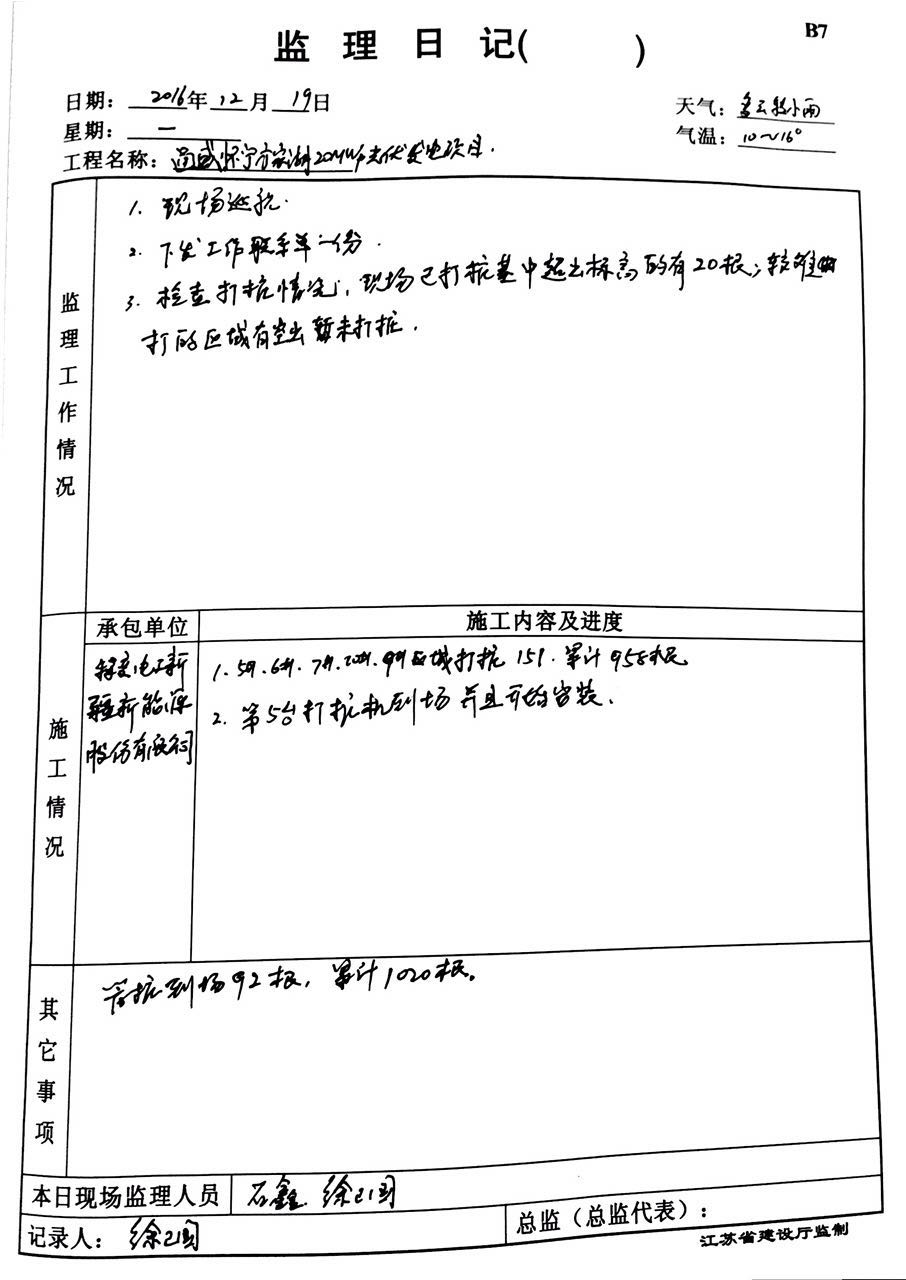 B7
监 理 日 记( )
日期: 2016年 12月 19日
天气: 多云转小雨
星期: 一
气温: 10~16°
工程名称: 尚盛怀宁方家湖20MWp光伏发电项目.
监理工作情况
1. 现场巡视.
2. 下发工作联系单一份.
3. 检查打桩情况, 现场已打桩基中超出标高的有20根; 较难
打的区域有空出暂未打桩.
施工情况
承包单位
施工内容及进度
特变电工新
疆新能源
股份有限公司
1. 5#. 6#. 7#. 9#区域打桩 151. 累计958根
2. 第5台打桩机到场并且开始安装.
其它事项
管桩到场92根, 累计1020根。
本日现场监理人员 石鑫 徐
记录人: 徐
总监（总监代表）:
江苏省建设厅监制